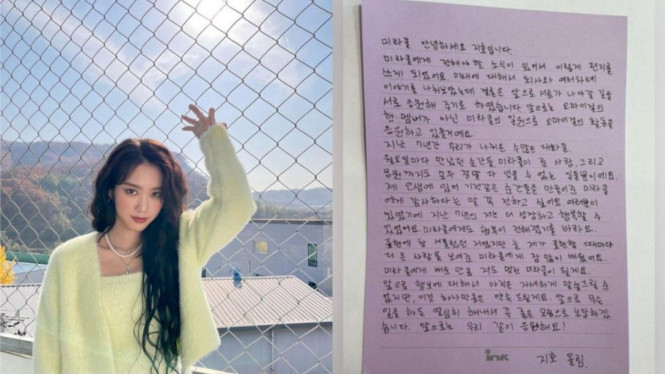 미라클 안녕하세요 지호입니다.
미라클에게 전해야 할 소식이 있어서 이렇게 편지를
쓰게 되었어요. 미래에 대해서 회사와 여러차례
이야기를 나눠보았는데 결론은 앞으로 서로가 나아갈 길을
서로 응원해 주기로 하였습니다. 앞으로는 오마이걸의
한 멤버가 아닌 미라클의 일원으로 오마이걸의 활동을
응원하고 있을게요.
지난 7년간 우리가 나눠온 수많은 대화들.
만났던 순간들 미라클이 준 사랑, 그리고
모두 정말 다 잊을 수 없는 일들뿐이에요.
제 인생에 있어 기적같은 순간들을 만들어준 미라클
에게 감사하다는 말 꼭 전하고 싶어요. 여러분이
있었기에 지난 7년의 저는 더 성장하고 행복할 수
있었어요. 미라클에게도 행복이 전해졌기를 바라요.
표현에 참 서툴렀던 저였지만 늘 제가 표현할 때마다
더 큰 사랑을 보여준 미라클에게 참 많이 배웠어요.
미라클에게 배운 만큼 저도 멋진 미라클이 될게요.
앞으로 행보에 대해서 아직은 자세하게 말씀드릴 수
없지만, 이것 하나만큼은 약속 드릴게요. 앞으로 무슨
일을 하든 열심히 해내서 꼭 좋은 모습으로 보답하겠
습니다. 앞으로는 우리 같이 응원해요!
ink
지호 올림.